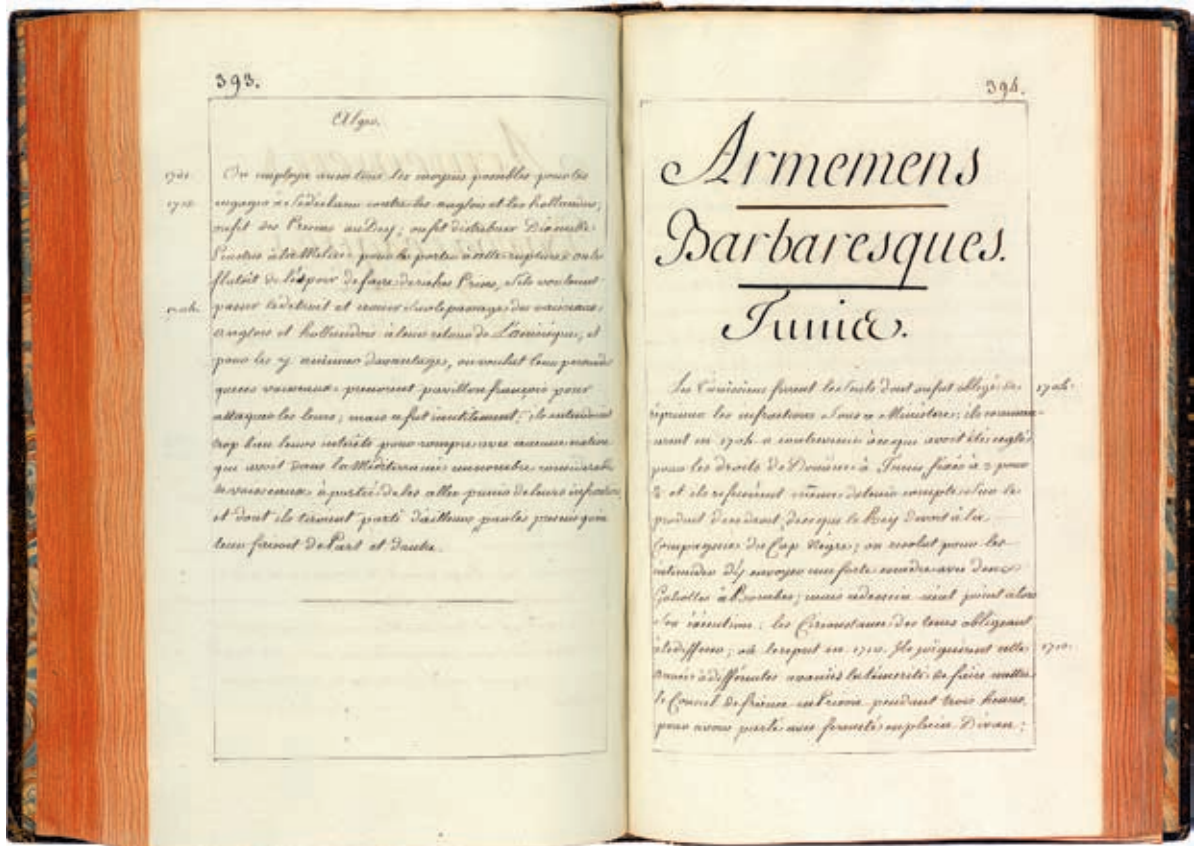 393.
Alger.
1701. On employa aussi tous les moyens possibles pour les
1702. engager à se déclarer contre les anglois et les hollandois,
on fit des Présens au Dey; on fit distribuer Dix mille
Piastres à la Milice pour la porter à cette rupture; on les
flatoit de l'éspoir de faire de riches Prises, s'ils vouloient
1704. passer le détroit et croiser sur le passage des vaisseaux
anglois et hollandois à leur retour de L'amérique, et
pour les y animer davantage, on vouloit leur persuader
que ces vaisseaux prenoient pavillon françois pour
attaquer les leurs; mais ce fut inutilement; ils entendoient
trop bien leurs intérêts pour rompre avec aucune nation
qui avoit dans la Méditerranée un nombre considérable
de vaisseaux à portée de les aller punir de leurs infractions,
et dont ils tiroient parti d'ailleurs par les présens qu'on
leur faisoit de Part et d'autre.
394.
Armemens
Barbaresques.
Tunis.
Les Tunisiens furent les seuls dont on fut obligé de 1704.
réprimer les infractions sous ce Ministere; ils commen-
cerent en 1704 a contrevenir à ce qui avoit été reglé
pour les droits de Doüane à Tunis fixés à 3 pour
% et ils refuserent même de tenir compte sur le
produit de ce droit de ce que le Bey devoit à la
Compagnie du Cap Négre; on resolut pour les
intimider d'y envoyer une forte escadre avec deux
Galiottes à Bombes; mais ce dessein n'eut point alors
son éxécution; les Circonstances des tems obligeant
à le differer; on le reprit en 1710. Ils joignirent cette 1710.
année à différentes avanies la témérité de faire mettre
le Consul de france en Prison pendant trois heures,
pour avoir parlé avec fermeté en plein Divan;